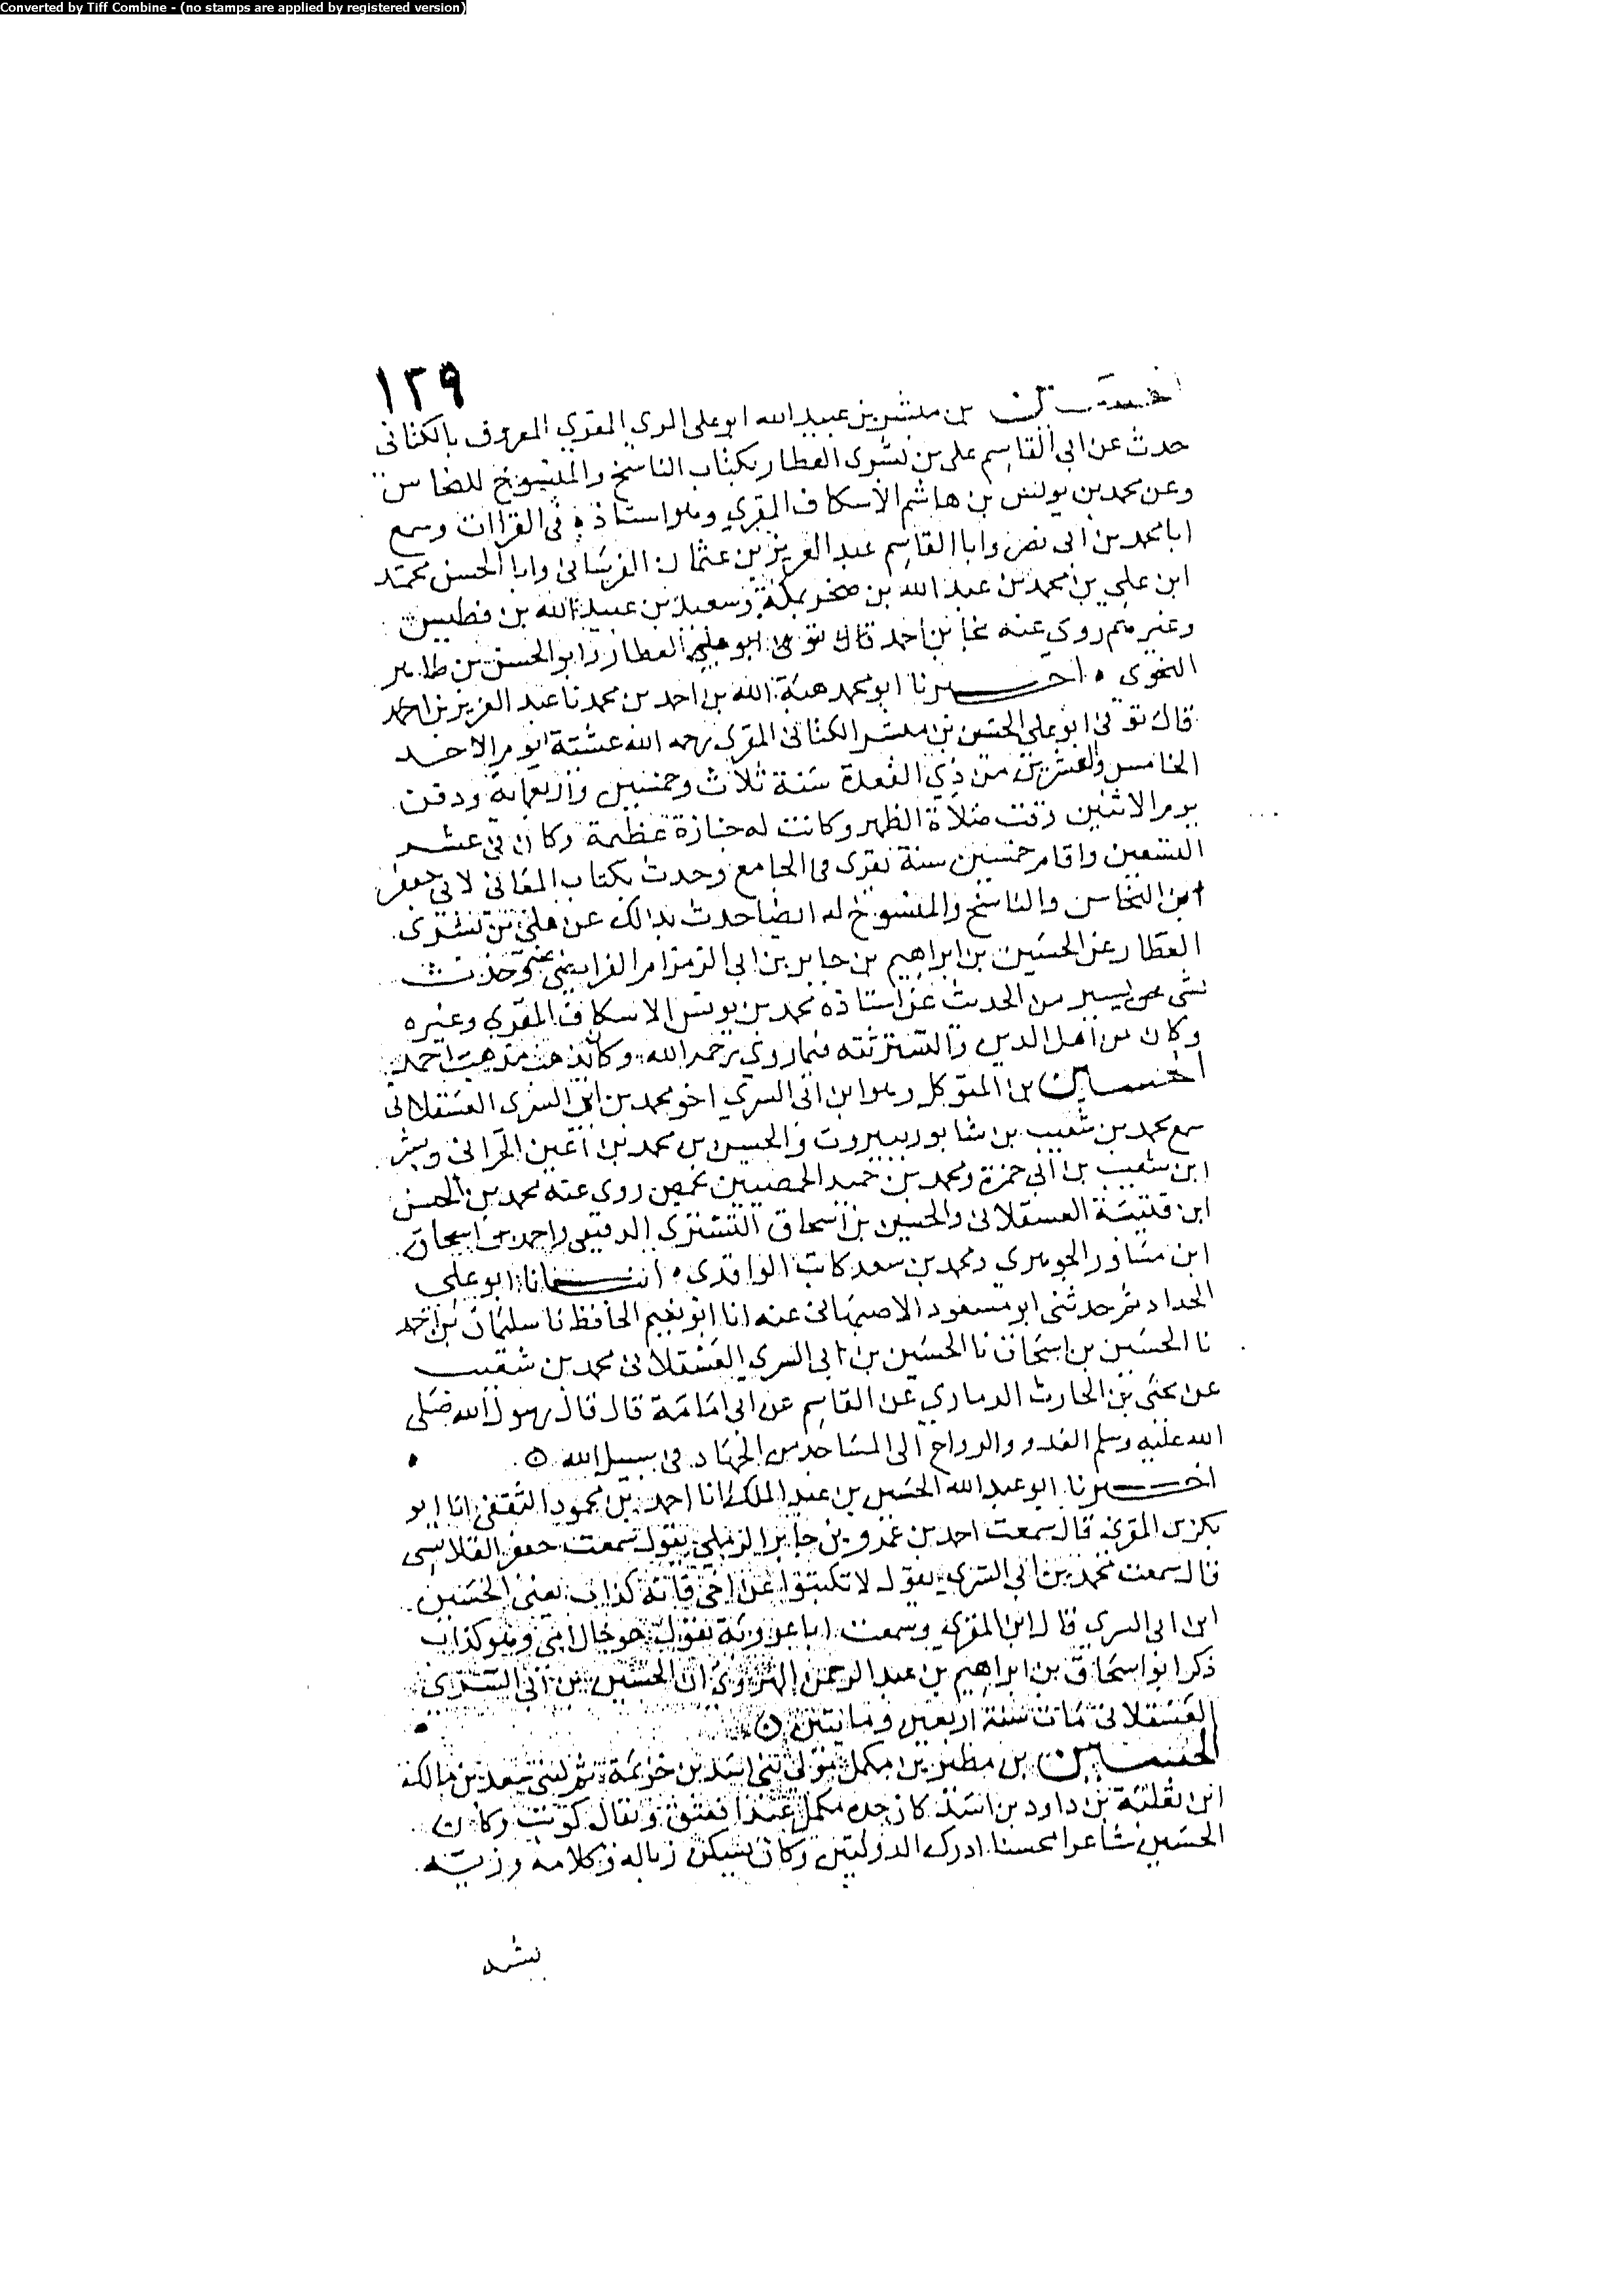 Converted by Tiff Combine - (no stamps are applied by registered version)
١٢٩
الحسين بن مبشر بن عبيد الله ابو على المقرى المعروف بالكتانى
حدث عن ابى القاسم على بن بشرى العطار بكتاب الناسخ والمنسوخ للنحاس
وعن محمد بن يونس بن هاشم الاسكاف المقرى وهو استاذه فى القراات وسمع
ابا محمد بن ابى نصر وابا القاسم عبد العزيز بن عثمان القرسانى وابا الحسن محمد
ابن على بن محمد بن عبد الله بن صخر بمكة وسعيد بن عبيد الله بن فطيس
وغيرهم روى عنه نجا بن احمد قال توفى ابو على العطار وابو الحسن بن طاهر
النحوى ۰ اخبرنا ابو محمد هبة الله بن احمد بن محمد نا عبد العزيز بن احمد
قال توفى ابو على الحسين بن مبشر الكتانى المقرى رحمه الله عشية يوم الاحد
الخامس والعشرين من ذي القعدة سنة ثلاث وخمسين واربعماية ودفن
يوم الاثنين وقت صلاة الظهر وكانت له جنازة عظيمة وكان فى عشر
التسعين واقام خمسين سنة يقرى فى الجامع وحدث بكتاب المعانى لابى جعفر
ابن النحاس والناسخ والمنسوخ له ايضا حدث بذالك عن على بن بشرى
العطار عن الحسين بن ابراهيم بن جابر بن ابى الزمزام الفرايضى عنه وحدث
بشى يسير من الحديث عن استاذه محمد بن يونس الاسكاف المقرى وغيره
وكان من اهل الدين والتستر ثقه فيما روى رحمه الله وكان يذهب مذهب احمد
الحسين بن المتوكل وهو ابن ابى السري اخو محمد بن ابى السرى العسقلانى
سمع محمد بن شعيب بن شابور ببيروت والحسين بن محمد بن اعين الحرانى وبشر
ابن شعيب بن ابى حمزة ومحمد بن حميد الحمصيين بحمص روى عنه محمد بن الحسن
ابن قتيبة العسقلانى والحسين بن اسحاق التسترى الدقيقى واحمد بن اسحاق
ابن مساور الجوهرى ومحمد بن سعد كاتب الواقدى ۰ انبانا ابو على
الحداد ثم حدثنى ابو مسعود الاصبهانى عنه انا ابو نعيم الحافظ نا سليمان بن احمد
نا الحسين بن اسحاق نا الحسين بن ابى السري العسقلانى محمد بن شعيب
عن يحيى بن الحارث الذماري عن القاسم عن ابى امامة قال قال رسول الله صلى
الله عليه وسلم الغدو والرواح الى المساجد من الجهاد فى سبيل الله
اخبرنا ابو عبد الله الحسين بن عبد الملك انا احمد بن محمود الثقفى انا ابو
بكر بن المقرى قال سمعت احمد بن عمرو بن جابر الرملى يقول سمعت جعفر القلانسى
قال سمعت محمد بن ابى السرى يقول لا تكتبوا عن اخى فانه كذاب يعنى الحسين
ابن ابى السري قال ابن المقرى وسمعت ابا عروبة يقول هو خال امى وهو كذاب
ذكر ابو اسحاق بن ابراهيم بن عبد الرحمن الهروى ان الحسين بن ابى السرى
العسقلانى مات سنة اربعين ومايتين
الحسين بن مطير بن مكمل مولى بنى اسد بن خزيمة ثم لبنى سعد بن مالك
ابن ثعلبة بن داود بن اسد كان جده مكمل عبدا فعتق ويقال كوتب وكان
الحسين شاعرا محسنا ادرك الدولتين وكان يسكن زباله وكلامه وزيه
يشبه